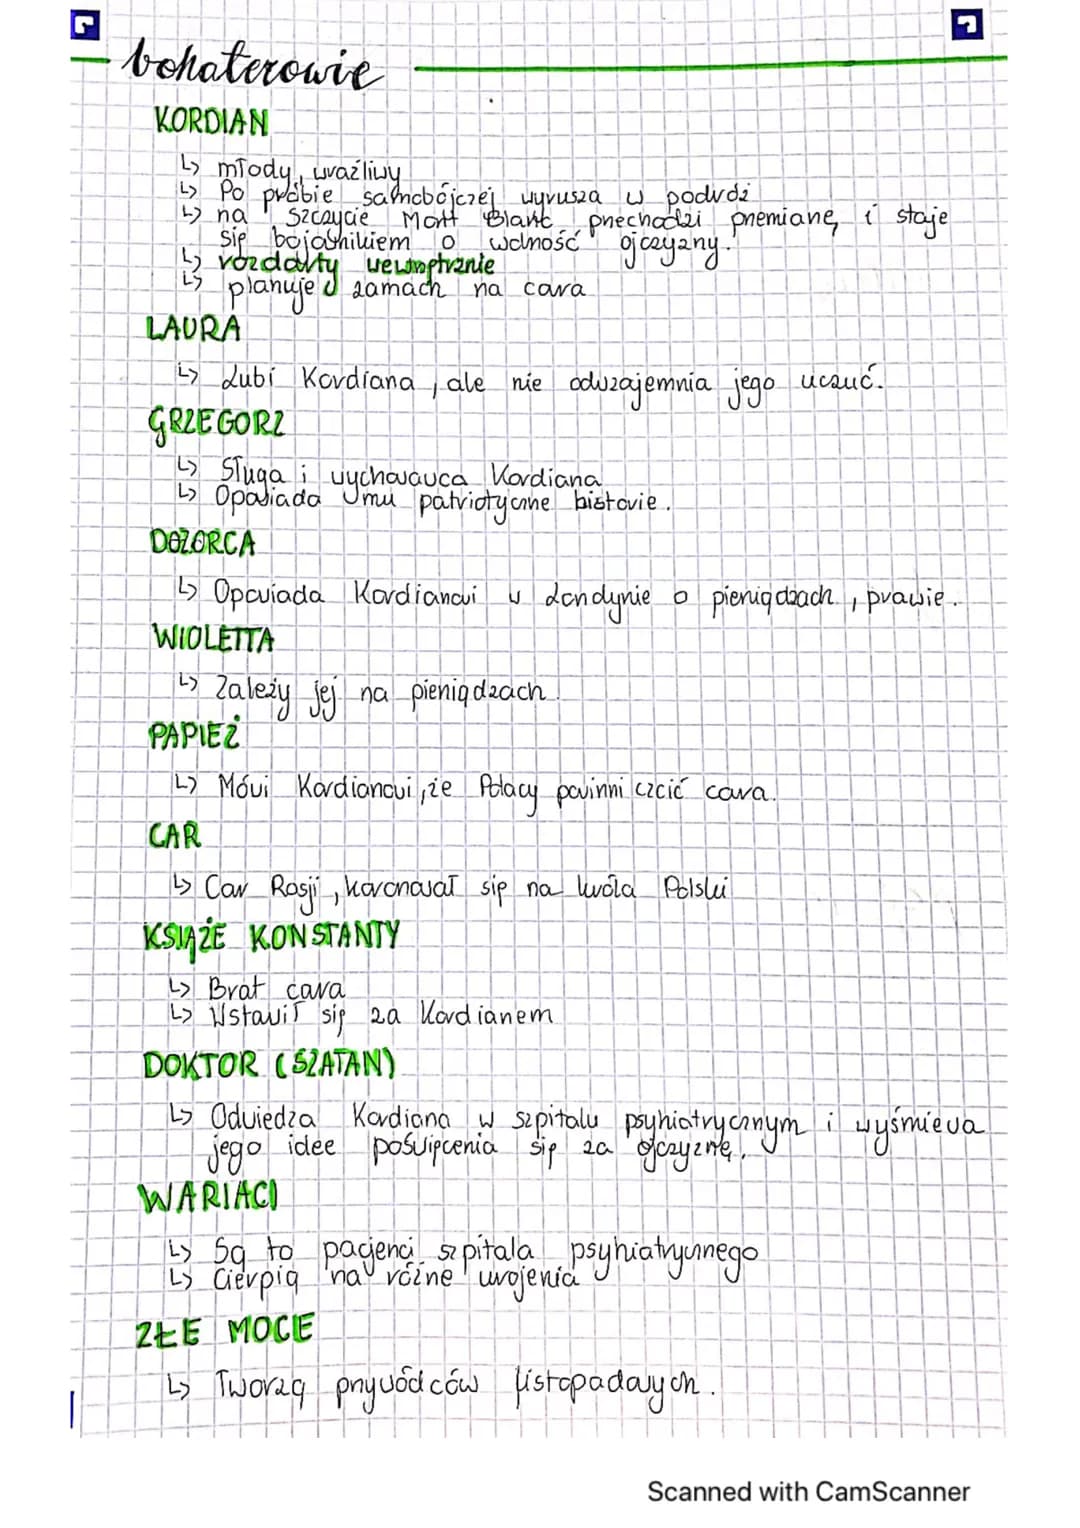 bohaterowie
KORDIAN
↳ młody, wrażliwy
↳ Po próbie samobójczej wyrusza w podróż
↳ na szczycie Mont Blanc przechodzi przemianę i staje
się bojownikiem o wolność ojczyzny.
↳ rozdarty wewnętrznie
↳ planuje zamach na cara
LAURA
↳ Lubi Kordiana, ale nie odwzajemnia jego uczuć.
GRZEGORZ
↳ Sługa i wychowawca Kordiana
↳ Opowiada mu patriotyczne historie.
DOZORCA
↳ Opowiada Kordianowi w Londynie o pieniądzach, prawie.
WIOLETTA
↳ Zależy jej na pieniądzach.
PAPIEŻ
↳ Mówi Kordianowi, że Polacy powinni czcić cara.
CAR
↳ Car Rosji, koronował się na króla Polski
KSIĄŻE KONSTANTY
↳ Brat cara
↳ Wstawił się za Kordianem
DOKTOR (SZATAN)
↳ Odwiedza Kordiana w szpitalu psyhiatrycznym i wyśmiewa
jego idee poświęcenia się za ojczyznę.
WARIACI
↳ Są to pacjenci szpitala psyhiatrycznego
↳ Cierpią na różne urojenia
ZŁE MOCE
↳ Tworzą przywódców listopadowych.
Scanned with CamScanner